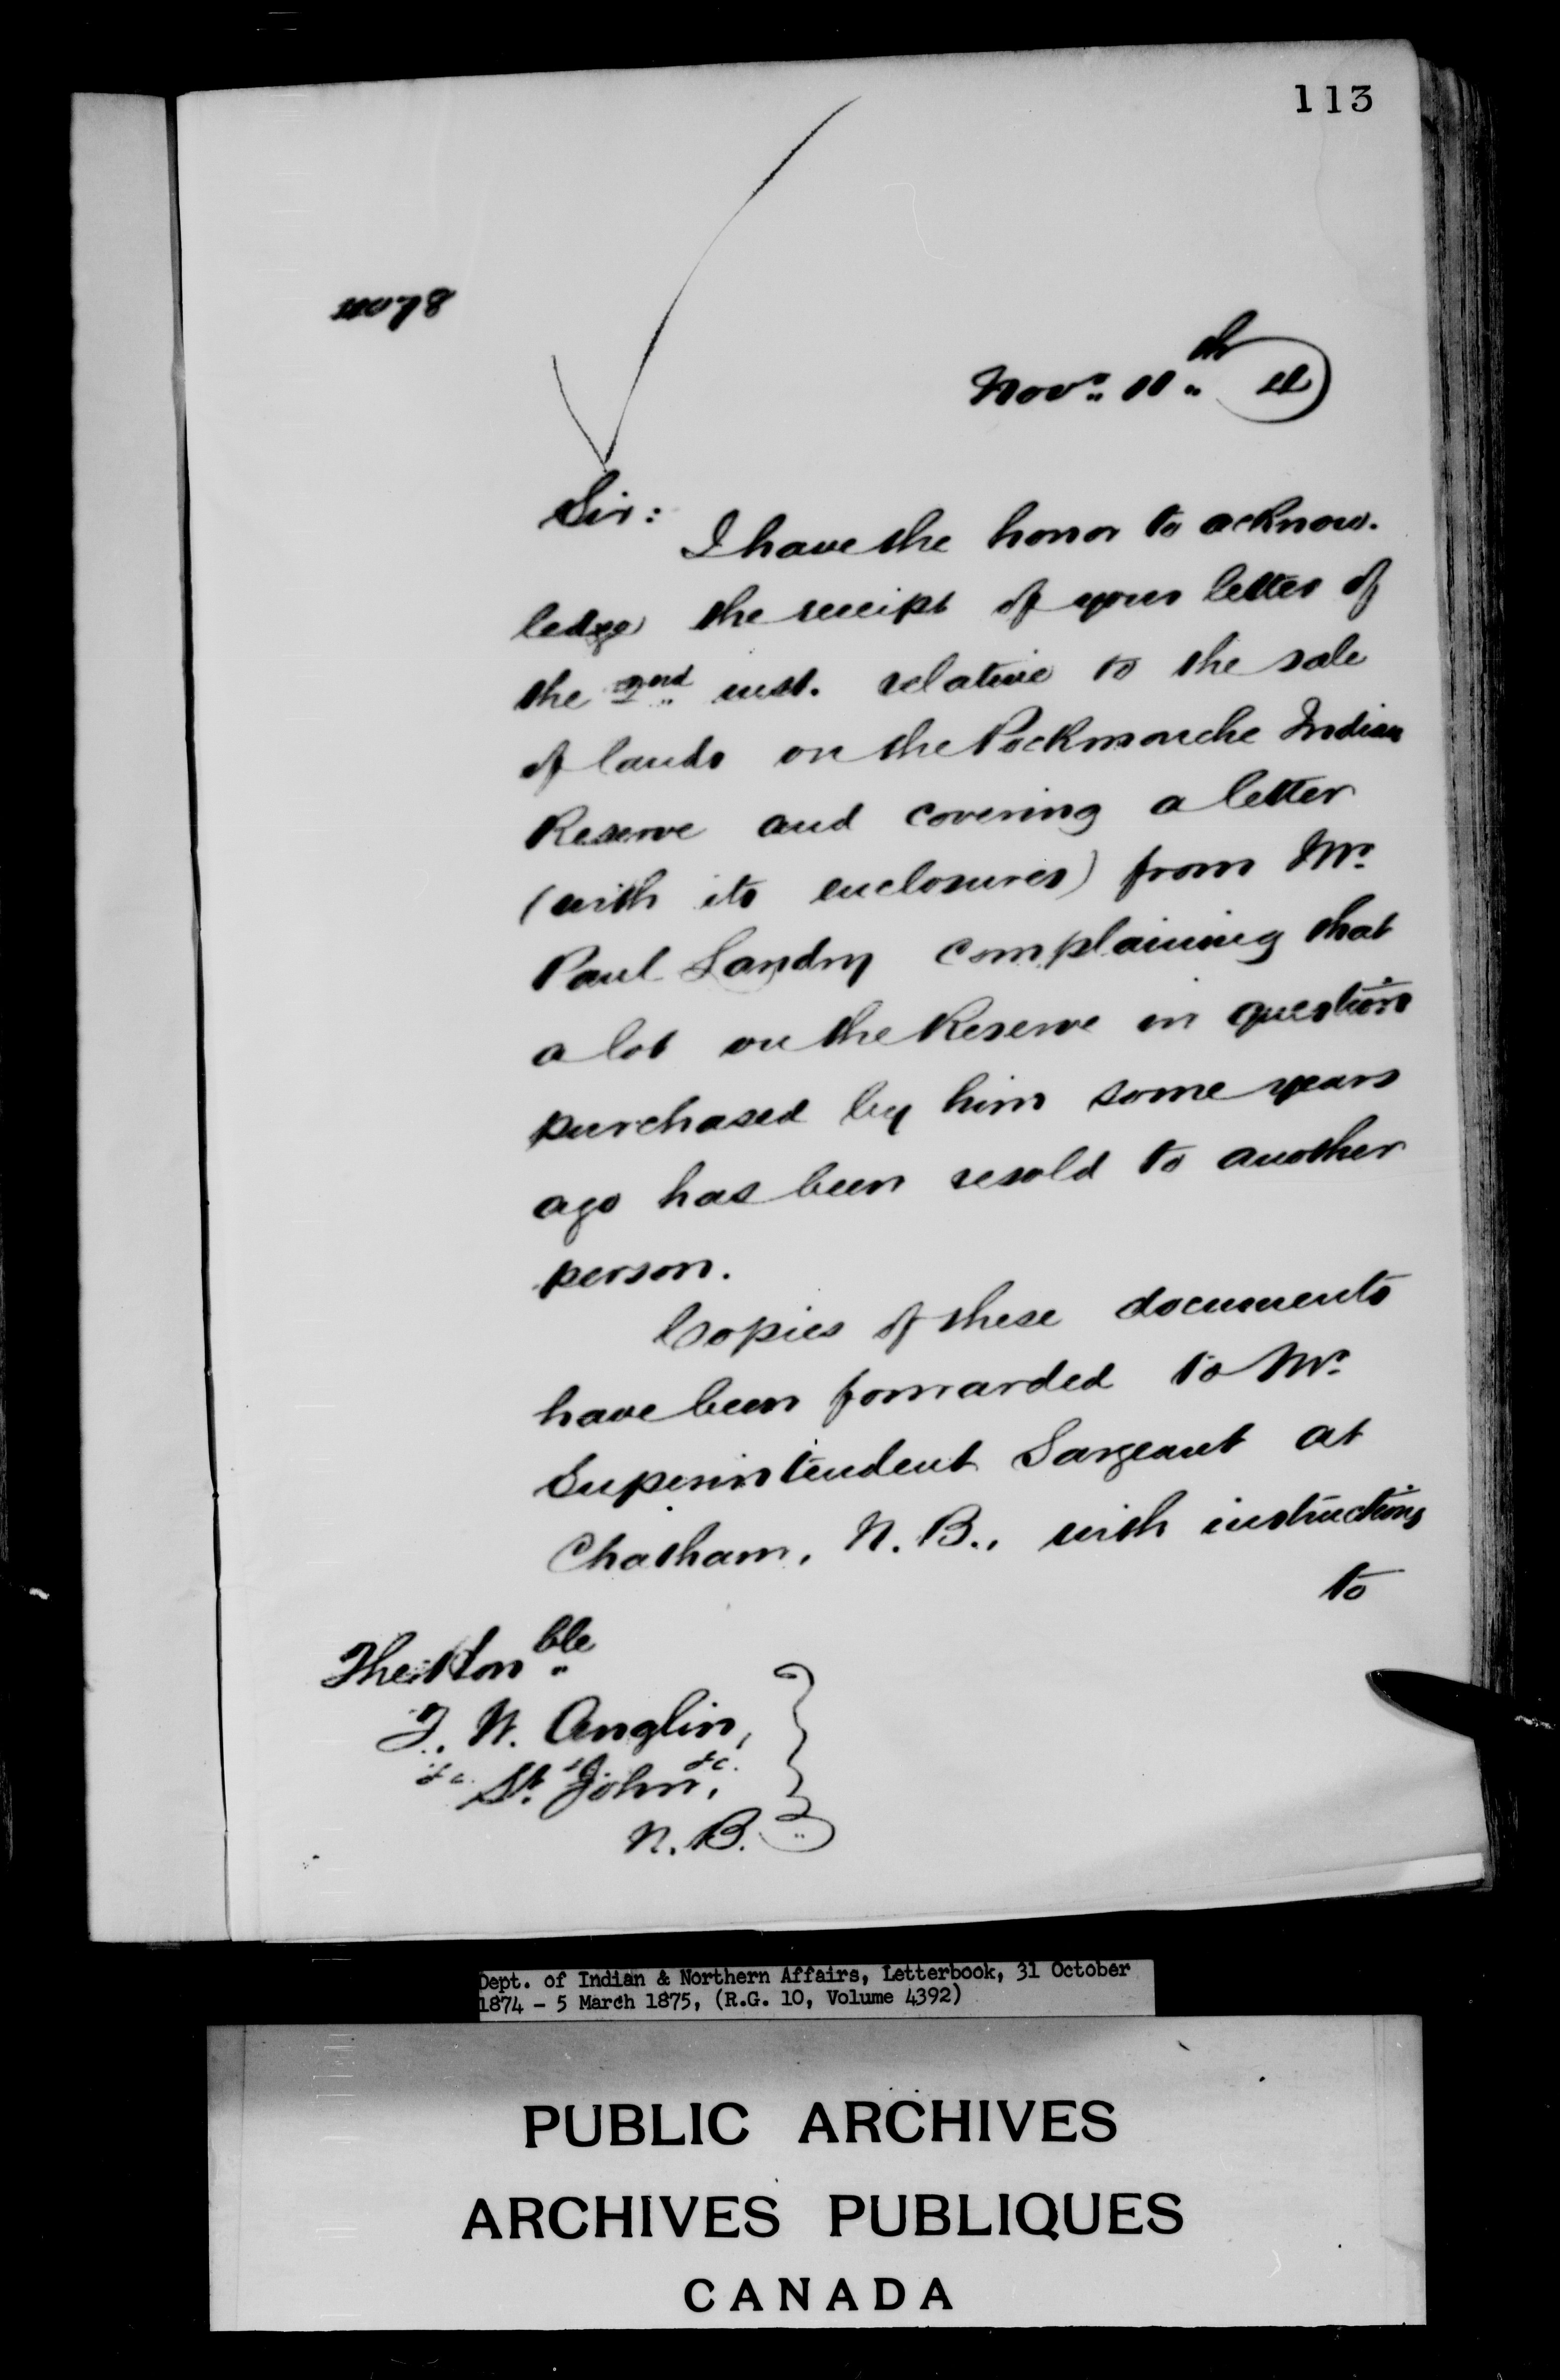 113
Novr. 11th
Sir:
I have the honor to acknow-
ledge the receipt of your letter of
the 2nd inst. relative to the sale
of lands on the Pockmouche Indian
Reserve and covering a letter
(with its enclosures) from Mr.
Paul Landry complaining that
a lot on the Reserve in question
purchased by him some years
ago has been resold to another
person.
Copies of these documents
have been forwarded to Mr.
Superintendent Sargeant at
Chatham, N.B., with instructions
to
The Honble
T. W. Anglin,
&c. &c.
St. John,
N.B.
Dept. of Indian & Northern Affairs, Letterbook, 31 October
1874 - 5 March 1875, (R.G. 10, Volume 4392)
PUBLIC ARCHIVES
ARCHIVES PUBLIQUES
CANADA